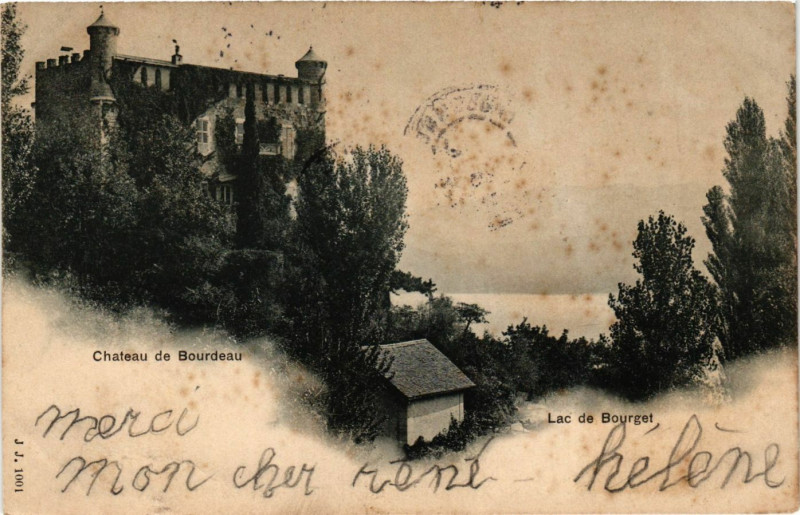 Chateau de Bourdeau
Lac de Bourget
J. J. 1001
merci
mon cher rené - hélène